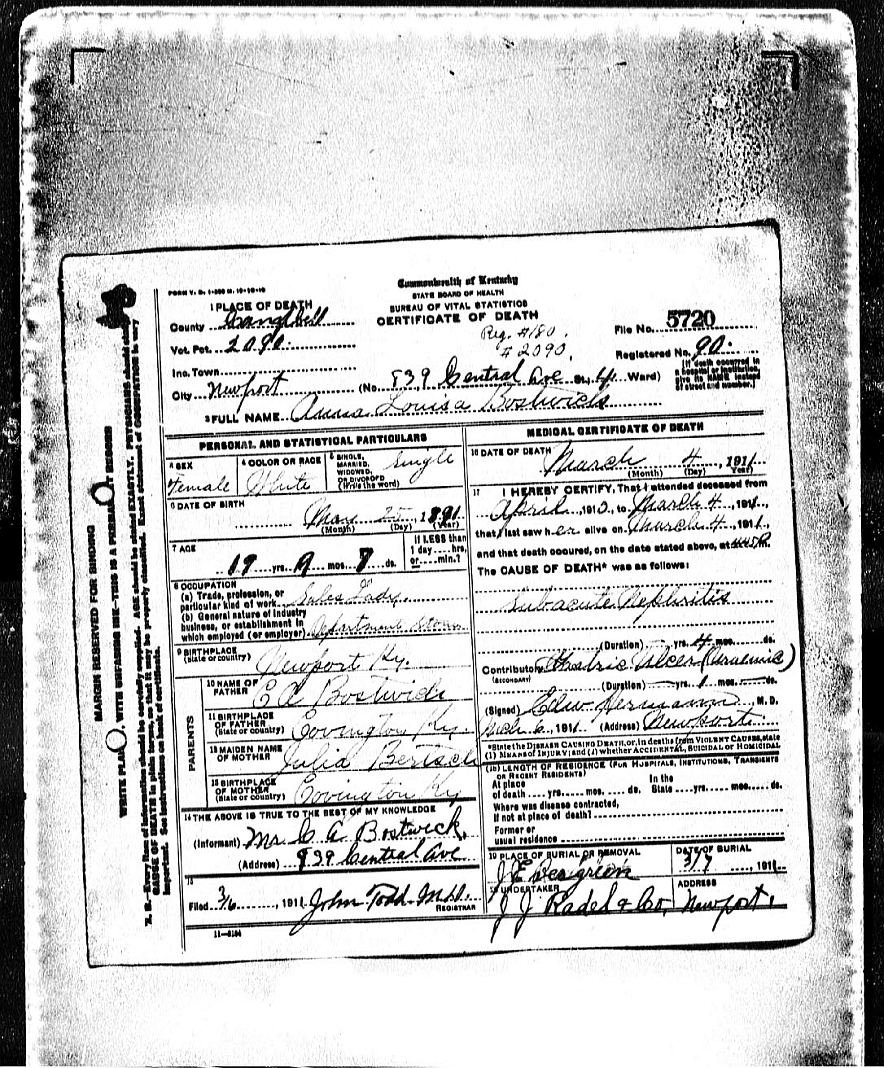 Commonwealth of Kentucky
STATE BOARD OF HEALTH
BUREAU OF VITAL STATISTICS
CERTIFICATE OF DEATH
1 PLACE OF DEATH
County Campbell
Vot. Pct. 2090.
Inc. Town
City Newport (No. 839 Central Ave St.; Ward)
Reg. #180.
#2090.
File No. 5720
Registered No. 90.
[If death occurred in
give its NAME instead
of street and number.]
2 FULL NAME Anna Louisa Bostwick
PERSONAL AND STATISTICAL PARTICULARS
3 SEX
Female
4 COLOR OR RACE
White
5 SINGLE,
MARRIED,
WIDOWED,
OR DIVORCED
(Write the word)
Single
6 DATE OF BIRTH
May 25, 1891
(Month) (Day) (Year)
7 AGE
19 yrs. 9 mos. 7 ds.
If LESS than
1 day....hrs.
or....min.?
8 OCCUPATION
(a) Trade, profession, or
particular kind of work Sales Lady.
(b) General nature of industry
business, or establishment in
which employed (or employer) Department Store
9 BIRTHPLACE
(State or country) Newport Ky.
PARENTS
10 NAME OF
FATHER C A Bostwick
11 BIRTHPLACE
OF FATHER
(State or country) Covington Ky.
12 MAIDEN NAME
OF MOTHER Julia Bertsch
13 BIRTHPLACE
OF MOTHER
(State or country) Covington Ky
14 THE ABOVE IS TRUE TO THE BEST OF MY KNOWLEDGE
(Informant) Mr. C A Bostwick.
(Address) 839 Central Ave
15
Filed 3/6, 1911 John Todd M.D.
REGISTRAR
11-5184
MEDICAL CERTIFICATE OF DEATH
16 DATE OF DEATH
March 4, 1911
(Month) (Day) (Year)
17 I HEREBY CERTIFY, That I attended deceased from
April, 1910, to March 4, 1911,
that I last saw her alive on March 4, 1911,
and that death occured, on the date stated above, at m.
The CAUSE OF DEATH* was as follows:
Subacute Nephritis
(Duration) yrs. 4 mos. ds.
Contributory Gastric Ulcer (Uraemia)
(SECONDARY)
(Duration) yrs. 1 mos. ds.
(Signed) Edw Hermann, M. D.
Mch 6, 1911 (Address) Newport
*State the DISEASE CAUSING DEATH, or, in deaths from VIOLENT CAUSES, state
(1) MEANS OF INJURY; and (2) whether ACCIDENTAL, SUICIDAL OR HOMICIDAL
18 LENGTH OF RESIDENCE (FOR HOSPITALS, INSTITUTIONS, TRANSIENTS
OR RECENT RESIDENTS)
At place In the
of death.... yrs..... mos..... ds. State .... yrs..... mos..... ds.
Where was disease contracted,
if not at place of death?
Former or
usual residence
19 PLACE OF BURIAL OR REMOVAL
Evergreen
DATE OF BURIAL
3/7, 1911
20 UNDERTAKER
J J Radel & Co,
ADDRESS
Newport.
MARGIN RESERVED FOR BINDING